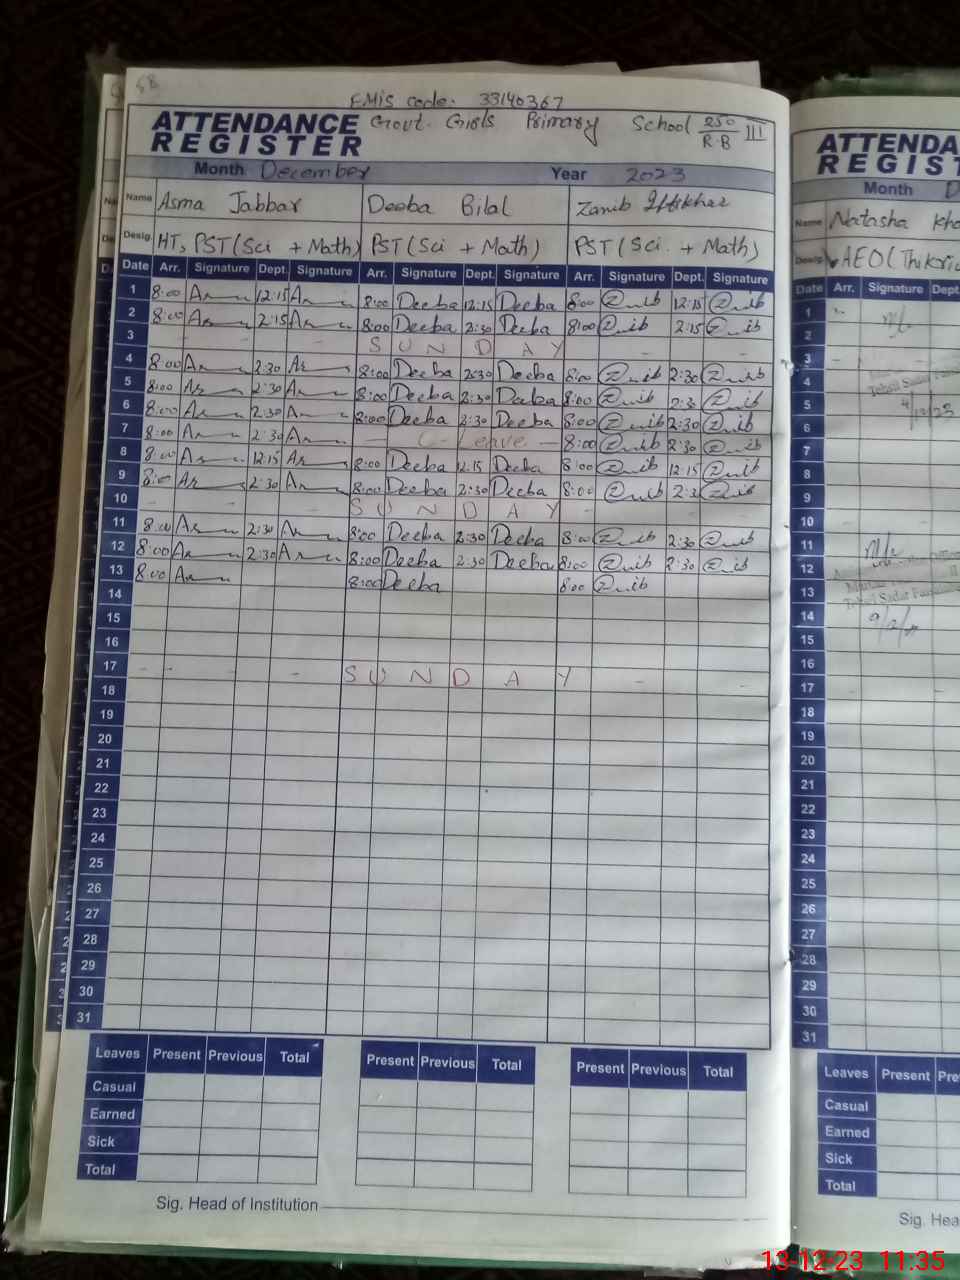 68
EMIS code. 33140367
ATTENDANCE REGISTER
Govt. Girls Primary School 250 R.B III
Month December Year 2023
Name Asma Jabbar Deeba Bilal Zanib Iftikhar
Desig. HT, PST(Sci + Math) PST(Sci + Math) PST(Sci. + Math)
Date Arr. Signature Dept. Signature Arr. Signature Dept. Signature Arr. Signature Dept. Signature
1 8:00 12:15 8:00 Deeba 12:15 Deeba 8:00 12:15
2 8:00 2:15 8:00 Deeba 2:30 Deeba 8:00 2:15
3 - - - - S U N D A Y - -
4 8:00 2:30 8:00 Deeba 2:30 Deeba 8:00 2:30
5 8:00 2:30 8:00 Deeba 2:30 Deeba 8:00 2:3
6 8:00 2:30 8:00 Deeba 2:30 Deeba 8:00 2:30
7 8:00 2:30 — C-Leave — 8:00 2:30
8 8:00 12:15 8:00 Deeba 12:15 Deeba 8:00 12:15
9 8:00 2:30 8:00 Deeba 2:30 Deeba 8:00 2:3
10 - - - - S U N D A Y - -
11 8:00 2:30 8:00 Deeba 2:30 Deeba 8:00 2:30
12 8:00 2:30 8:00 Deeba 2:30 Deeba 8:00 2:30
13 8:00 8:00 Deeba 8:00
14
15
16
17 - - - - S U N D A Y - -
18
19
20
21
22
23
24
25
26
27
28
29
30
31
Leaves Present Previous Total Present Previous Total Present Previous Total
Casual
Earned
Sick
Total
Sig. Head of Institution
ATTENDA
REGIST
Month D
Name Natasha Kha
Desig. AEO(Thikriw
Date Arr. Signature Dept
1
2
3
4
Tehsil Sadar
5 4/12/23
6
7
8
9
10
11
12
13
Tehsil Sadar
14
15
16
17
18
19
20
21
22
23
24
25
26
27
28
29
30
31
Leaves Present Pre
Casual
Earned
Sick
Total
Sig. Hea
13-12-23 11:35